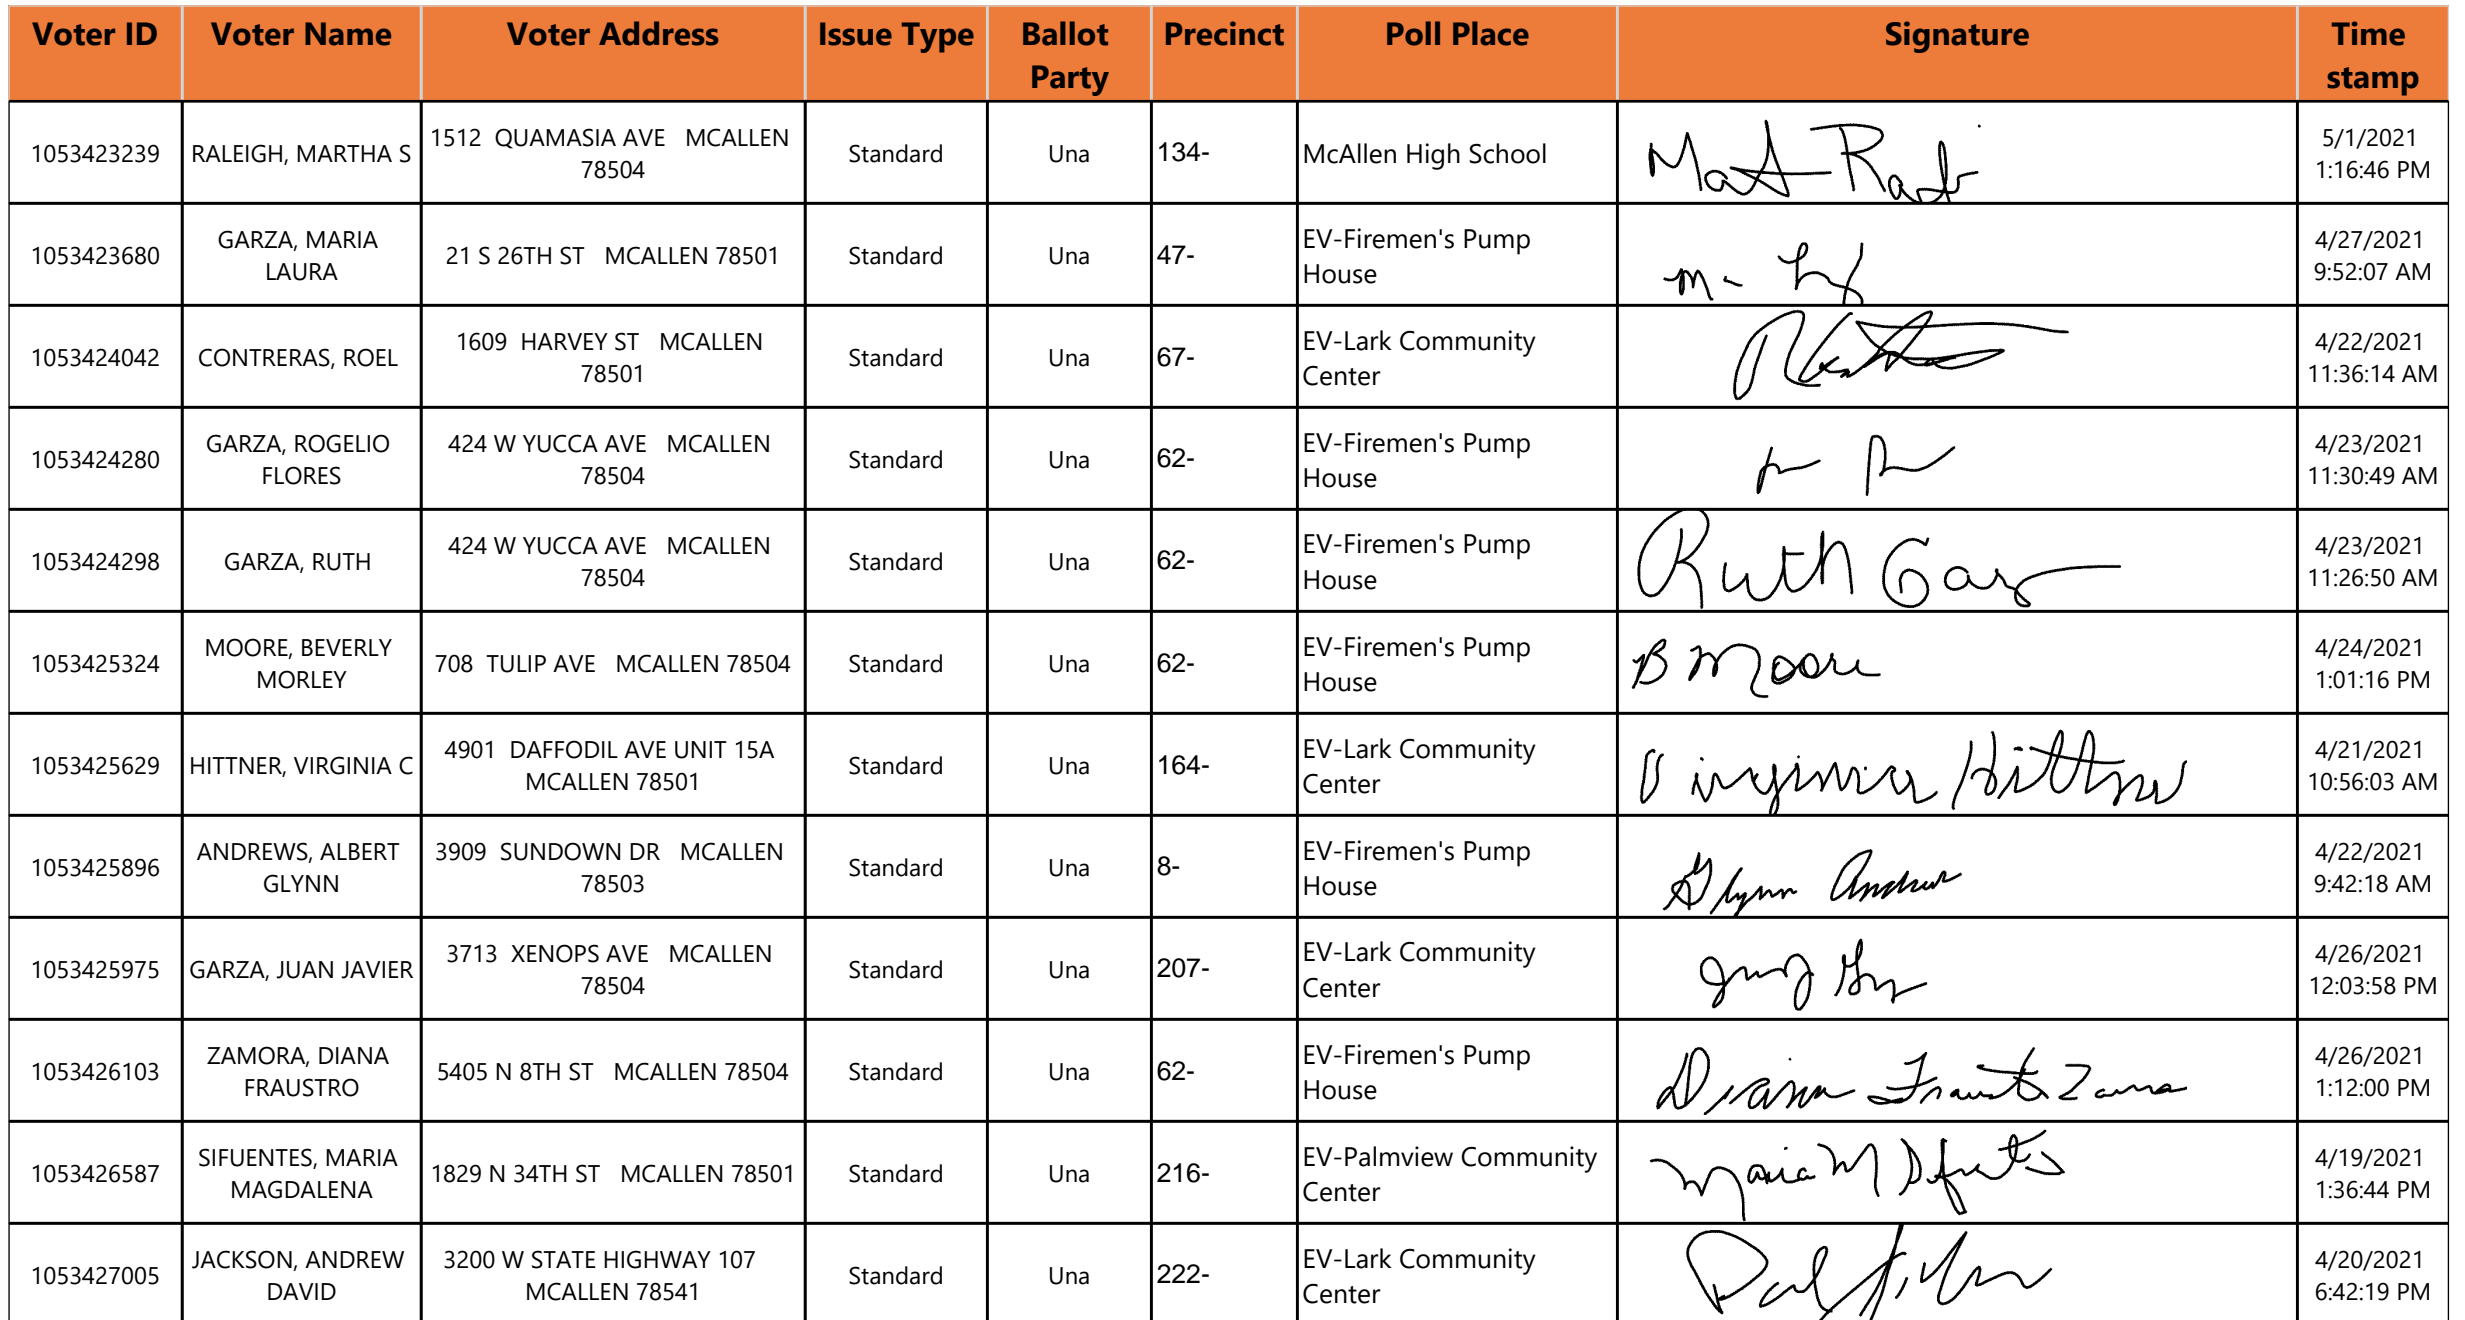 Voter ID Voter Name Voter Address Issue Type Ballot Party Precinct Poll Place Signature Time stamp
1053423239 RALEIGH, MARTHA S 1512 QUAMASIA AVE MCALLEN 78504 Standard Una 134- McAllen High School 5/1/2021 1:16:46 PM
1053423680 GARZA, MARIA LAURA 21 S 26TH ST MCALLEN 78501 Standard Una 47- EV-Firemen's Pump House 4/27/2021 9:52:07 AM
1053424042 CONTRERAS, ROEL 1609 HARVEY ST MCALLEN 78501 Standard Una 67- EV-Lark Community Center 4/22/2021 11:36:14 AM
1053424280 GARZA, ROGELIO FLORES 424 W YUCCA AVE MCALLEN 78504 Standard Una 62- EV-Firemen's Pump House 4/23/2021 11:30:49 AM
1053424298 GARZA, RUTH 424 W YUCCA AVE MCALLEN 78504 Standard Una 62- EV-Firemen's Pump House Ruth Garz 4/23/2021 11:26:50 AM
1053425324 MOORE, BEVERLY MORLEY 708 TULIP AVE MCALLEN 78504 Standard Una 62- EV-Firemen's Pump House B Moore 4/24/2021 1:01:16 PM
1053425629 HITTNER, VIRGINIA C 4901 DAFFODIL AVE UNIT 15A MCALLEN 78501 Standard Una 164- EV-Lark Community Center Virginia Hittner 4/21/2021 10:56:03 AM
1053425896 ANDREWS, ALBERT GLYNN 3909 SUNDOWN DR MCALLEN 78503 Standard Una 8- EV-Firemen's Pump House Glynn Andrews 4/22/2021 9:42:18 AM
1053425975 GARZA, JUAN JAVIER 3713 XENOPS AVE MCALLEN 78504 Standard Una 207- EV-Lark Community Center 4/26/2021 12:03:58 PM
1053426103 ZAMORA, DIANA FRAUSTRO 5405 N 8TH ST MCALLEN 78504 Standard Una 62- EV-Firemen's Pump House Diana 4/26/2021 1:12:00 PM
1053426587 SIFUENTES, MARIA MAGDALENA 1829 N 34TH ST MCALLEN 78501 Standard Una 216- EV-Palmview Community Center Maria M 4/19/2021 1:36:44 PM
1053427005 JACKSON, ANDREW DAVID 3200 W STATE HIGHWAY 107 MCALLEN 78541 Standard Una 222- EV-Lark Community Center 4/20/2021 6:42:19 PM